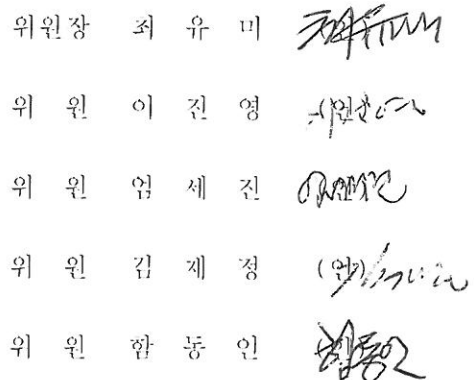 위원장 최 유 미
위 원 이 진 영
위 원 엄 세 진
위 원 김 재 정 (인)
위 원 함 동 인